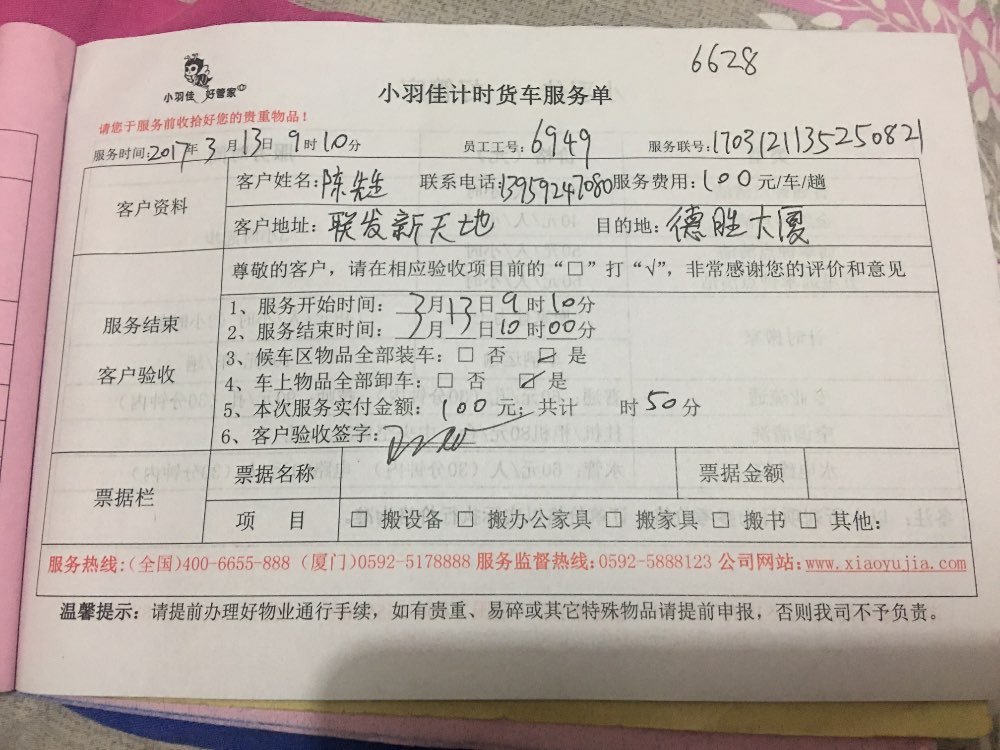 6628
小羽佳 好管家
小羽佳计时货车服务单
请您于服务前收拾好您的贵重物品！
服务时间:2017年3月13日9时10分 员工工号:6949 服务联号:1703121135250821
客户资料
客户姓名:陈先生 联系电话:13959247080服务费用:100元/车/趟
客户地址:联发新天地 目的地:德胜大厦
服务结束
客户验收
尊敬的客户，请在相应验收项目前的“□”打“√”，非常感谢您的评价和意见
1、服务开始时间：3月13日9时10分
2、服务结束时间：3月13日10时00分
3、候车区物品全部装车：□ 否 ☑ 是
4、车上物品全部卸车：□ 否 ☑ 是
5、本次服务实付金额：100元；共计 时50分
6、客户验收签字：
票据栏
票据名称 票据金额
项 目 □ 搬设备 □ 搬办公家具 □ 搬家具 □ 搬书 □ 其他：
服务热线:(全国)400-6655-888 (厦门)0592-5178888 服务监督热线:0592-5888123 公司网站:www.xiaoyujia.com
温馨提示：请提前办理好物业通行手续，如有贵重、易碎或其它特殊物品请提前申报，否则我司不予负责。